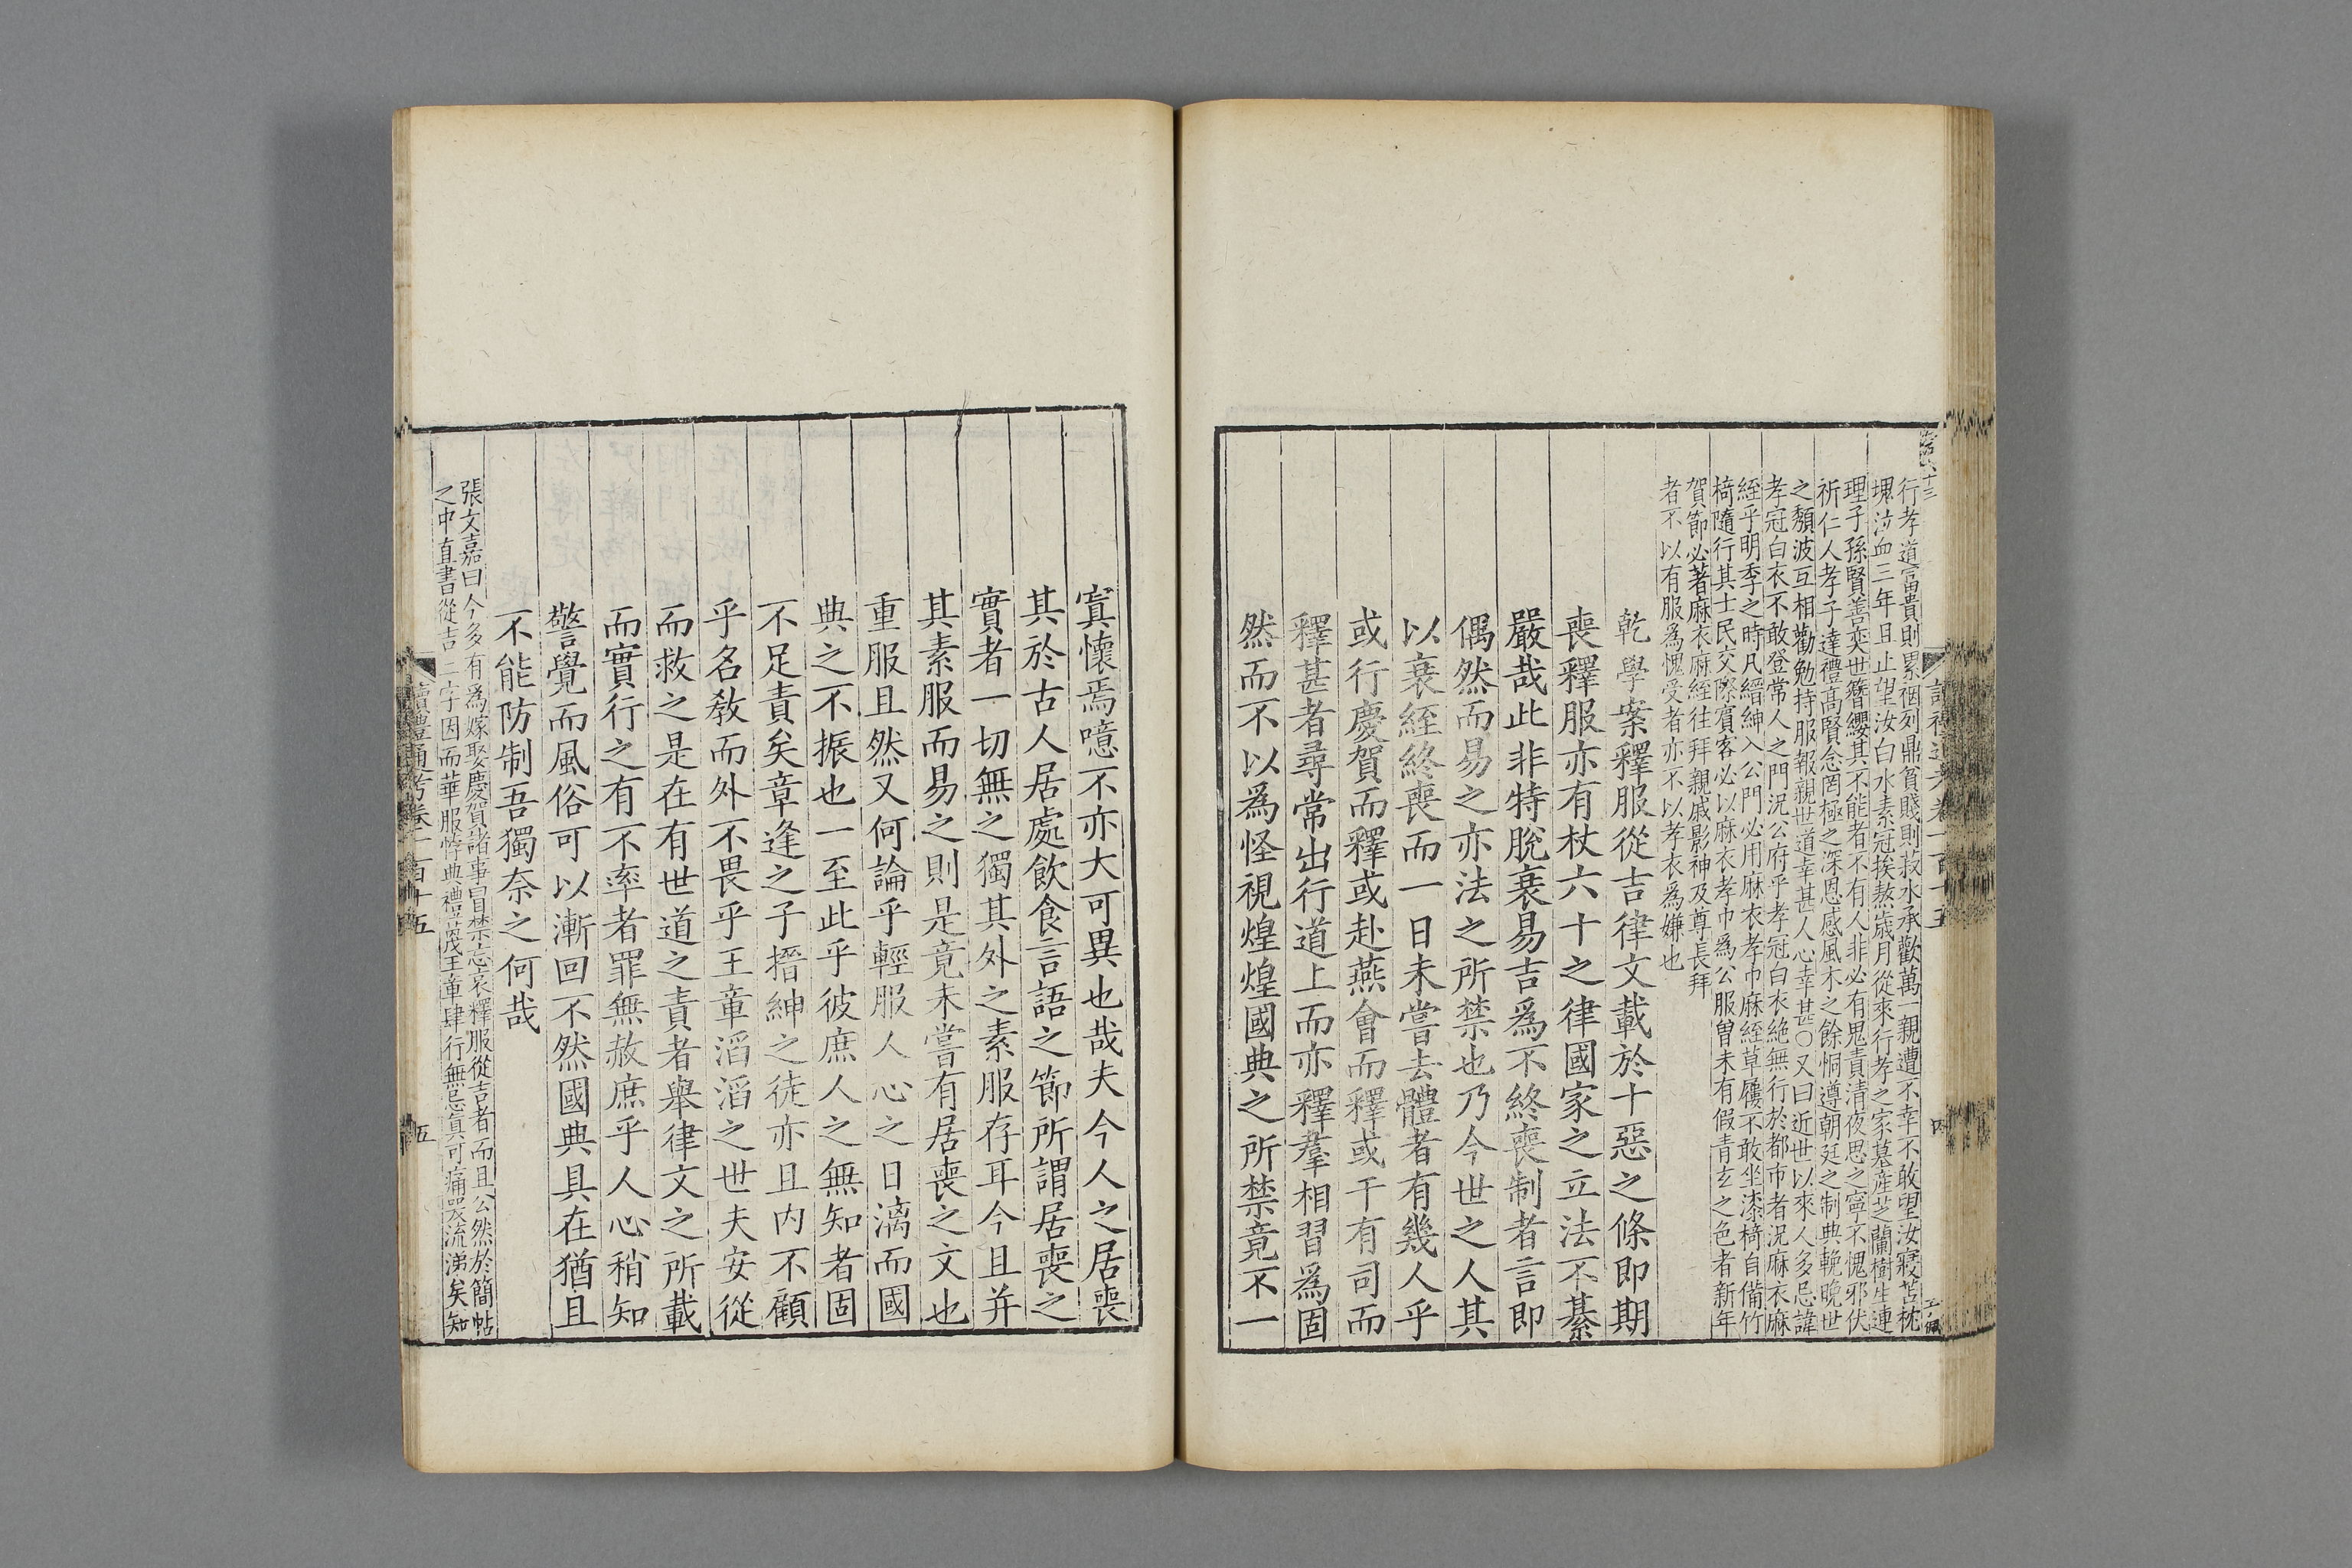 行孝道富貴則累裀列鼎貧賤則菽水承歡萬一親遭不幸不敢望汝寢苫枕
塊泣血三年且止望汝白水素冠挨熬歲月從來行孝之家墓産芝蘭樹生連
理子孫賢善奕世簪纓其不能者不有人非必有鬼責清夜思之寧不愧邪伏
祈仁人孝子達禮高賢念罔極之深恩感風木之餘恫遵朝廷之制典輓晚世
之頽波互相勸勉持服報親世道幸甚人心幸甚○又曰近世以來人多忌諱
孝冠白衣不敢登常人之門況公府乎孝冠白衣絶無行於都市者況麻衣麻
絰乎明季之時凡縉紳入公門必用麻衣孝巾麻絰草屨不敢坐漆椅自備竹
椅隨行其士民交際賓客必以麻衣孝巾爲公服曽未有假青玄之色者新年
賀節必著麻衣麻絰往拜親戚影神及尊長拜
者不以有服爲愧受者亦不以孝衣爲嫌也
乾學案釋服從吉律文載於十惡之條即期
喪釋服亦有杖六十之律國家之立法不綦
嚴哉此非特脫衰易吉爲不終喪制者言即
偶然而易之亦法之所禁也乃今世之人其
以衰絰終喪而一日未嘗去體者有幾人乎
或行慶賀而釋或赴燕會而釋或干有司而
釋甚者尋常出行道上而亦釋羣相習爲固
然而不以爲怪視煌煌國典之所禁竟不一
寘懷焉噫不亦大可異也哉夫今人之居喪
其於古人居處飲食言語之節所謂居喪之
實者一切無之獨其外之素服存耳今且并
其素服而易之則是竟未嘗有居喪之文也
重服且然又何論乎輕服人心之日漓而國
典之不振也一至此乎彼庶人之無知者固
不足責矣章逢之子搢紳之徒亦且内不顧
乎名敎而外不畏乎王章滔滔之世夫安從
而救之是在有世道之責者舉律文之所載
而實行之有不率者罪無赦庶乎人心稍知
警覺而風俗可以漸回不然國典具在猶且
不能防制吾獨奈之何哉
張文嘉曰今多有爲嫁娶慶賀諸事冒禁忘哀釋服從吉者而且公然於簡帖
之中直書從吉二字因而華服悖典禮蔑王章肆行無忌真可痛哭流涕矣知
讀禮通考卷一百十五
五